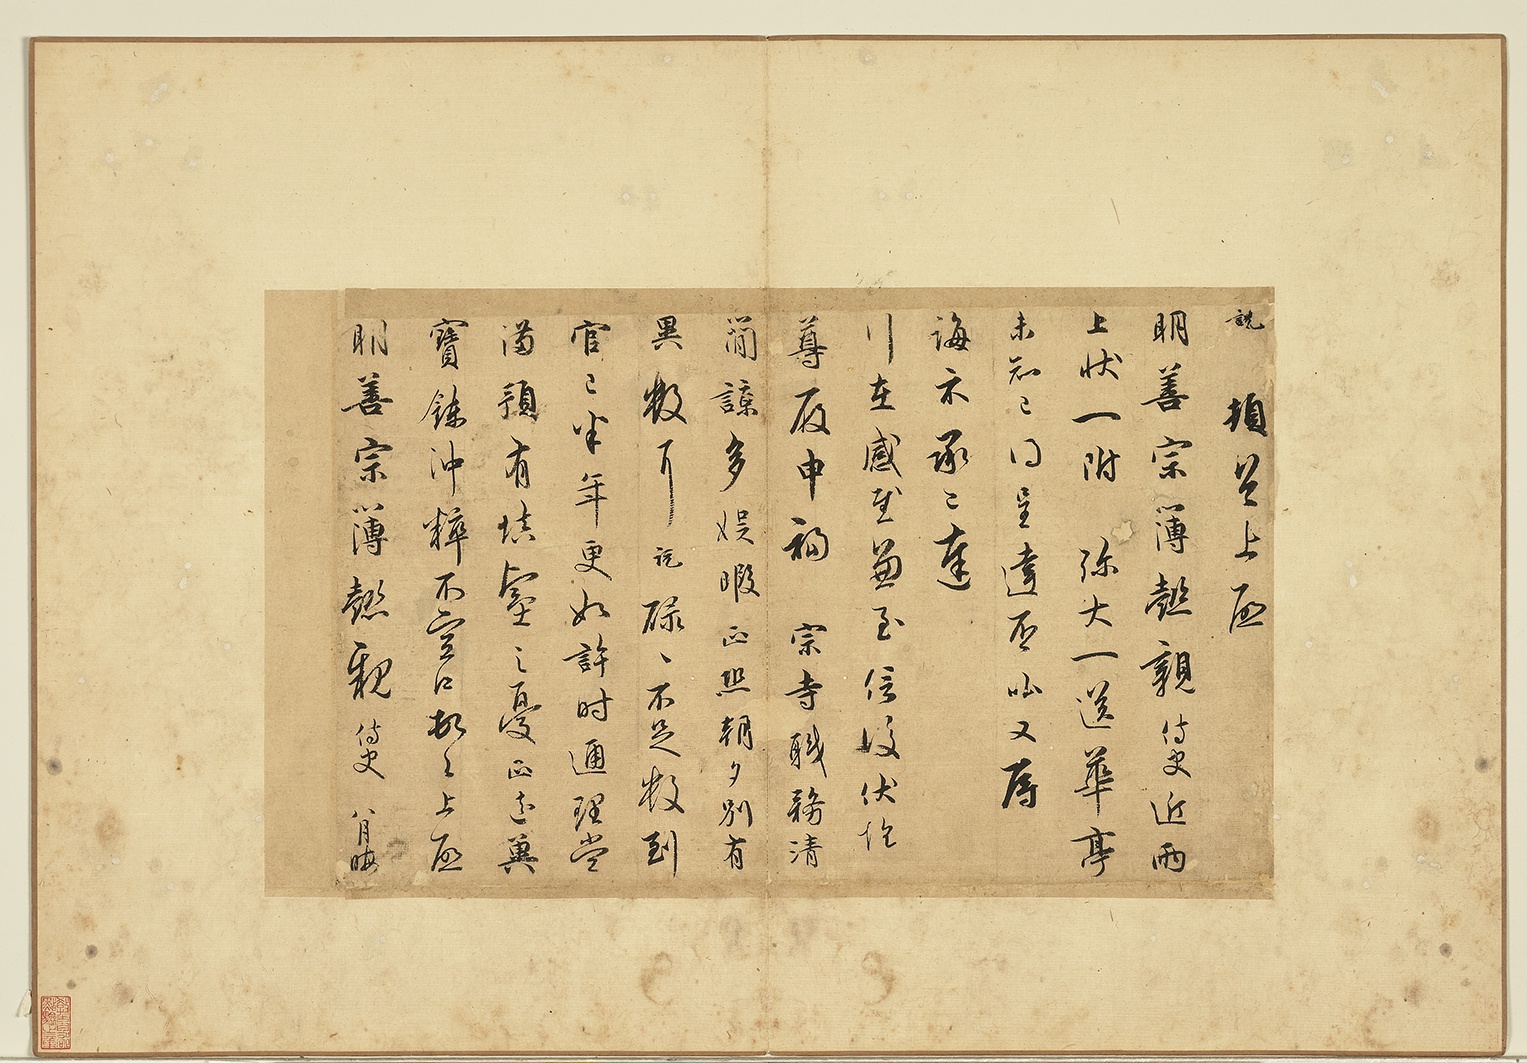 說 頓首上啟
明善宗簿懿親侍史近兩
上狀一附 孫大一送華亭
未知已得呈達否此又辱
誨示承已達
行在感慰兼至信後伏惟
尊履申福 宗寺職務清
簡諒多娛暇正熙朝夕別有
異數耳說碌碌不足數到
官已半年更如許時邇理當
滿預有填壑之憂正遠冀
寶鍊沖粹不宣說頓首上啟
明善宗簿懿親侍史 八月晦